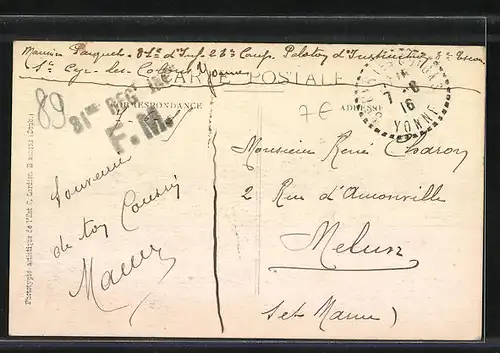 Maurice Parquet 81e d'Inf. 28e Comp. Peloton d'Instruction
St Cyr-les-Colons Yonne
CARTE POSTALE
CORRESPONDANCE
ADRESSE
89
81me REGt INFie
F. M.
7 €
7 - 8
16
YONNE
Souvenir
de ton Cousin
Monsieur René Charon
2 Rue d'Amonville
Melun
Set Marne)
Phototypie artistique de l'Est